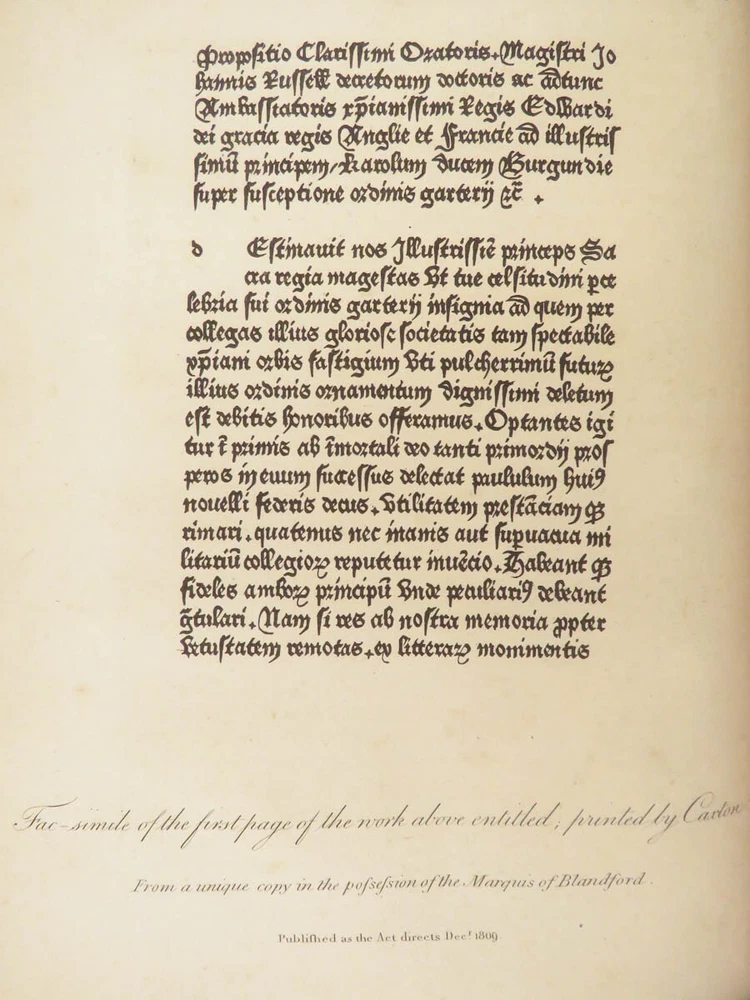 Propositio Clarissimi Oratoris. Magistri Jo
hannis Russell decretorum doctoris ac ad̄tunc
Ambassiatoris xp̄ianissimi Regis Edwardi
dei gracia regis Anglie et Francie ad illustris
simū principem / Karolum ducem Burgundie
super susceptione ordinis garterij ꝛc̄ .
d Estinauit nos Illustrissīe princeps Sa
cra regia magestas vt tue celsitudini ꝑce
lebria sui ordinis garterij insignia ad quem per
collegas illius gloriose societatis tam spectabile
xp̄iani orbis fastigium vti pulcherrimū futuꝝ
illius ordinis ornamentum dignissimi deletum
est debitis honoribus offeramus. Optantes igi
tur ī primis ab īmortali deo tanti primordij pros
peros in euum successus delectat paululum huiꝰ
nouelli federis decus. vtilitatem prestāciam qꝫ
rimari. quatenus nec inanis aut supuacua mi
litariū collegioꝝ reputetur inuēcio. Habeant qꝫ
fideles amboꝝ principū vnde peculiariꝰ debeant
ḡtulari. Nam si res ab nostra memoria ꝓpter
vetustatem remotas. ex litteraꝝ monimentis
Fac-simile of the first page of the work above entitled; printed by Caxton
From a unique copy in the poſseſsion of the Marquis of Blandford.
Publiſhed as the Act directs Decr. 1809.